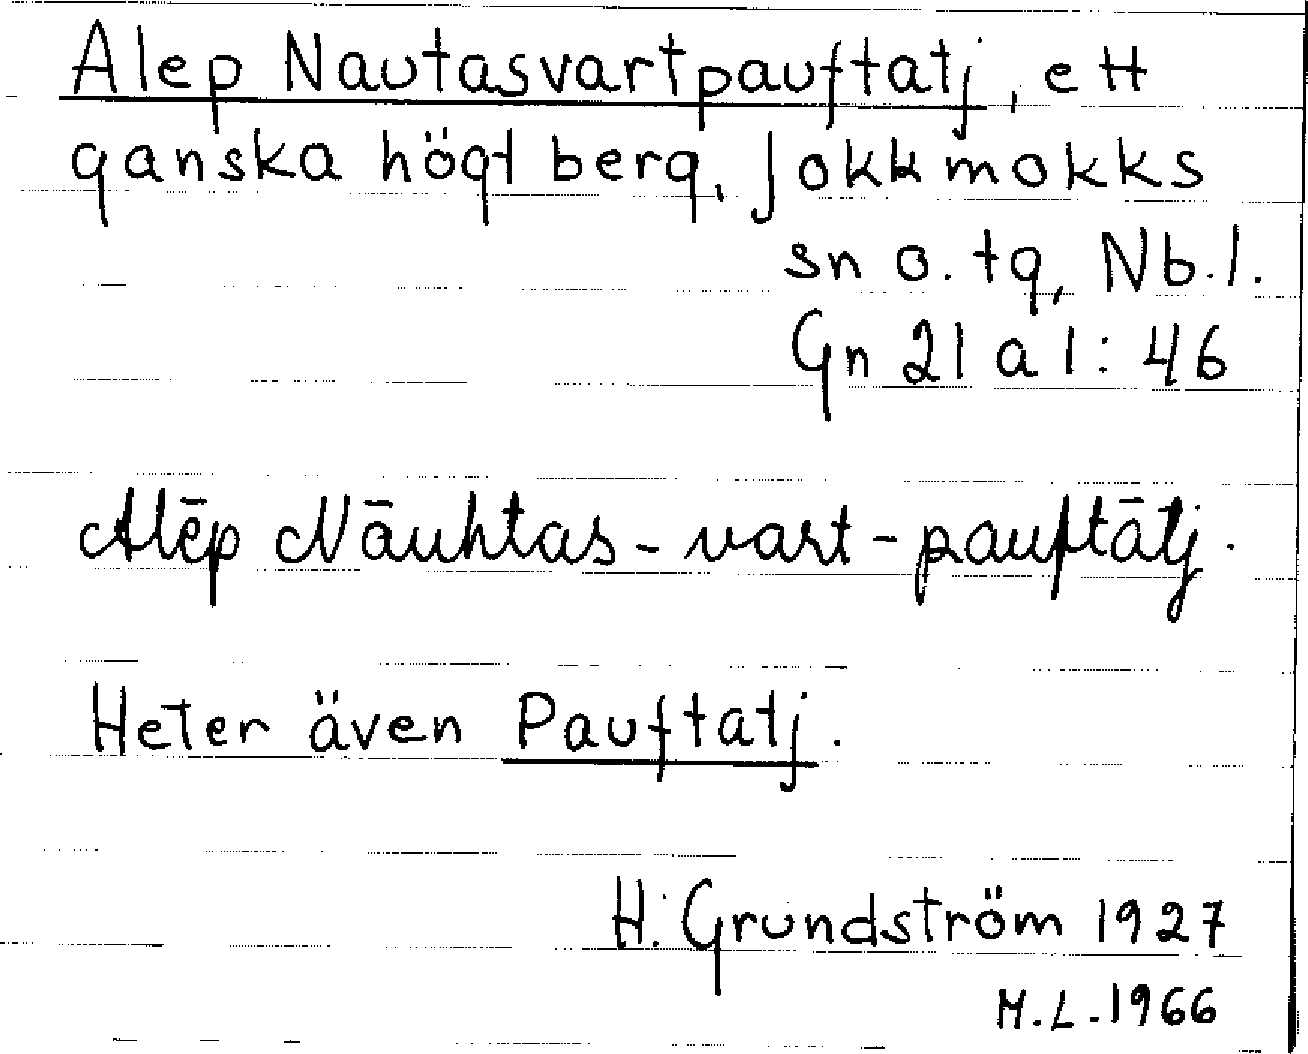 Alep Nautasvartpauftatj, ett
ganska högt berg, Jokkmokks
sn o. tg, Nb.l.
Gn 21 a 1: 46
Alēp Nāuhtas-vart-pauftātj.
Heter även Pauftatj.
H. Grundström 1927
M.L. 1966